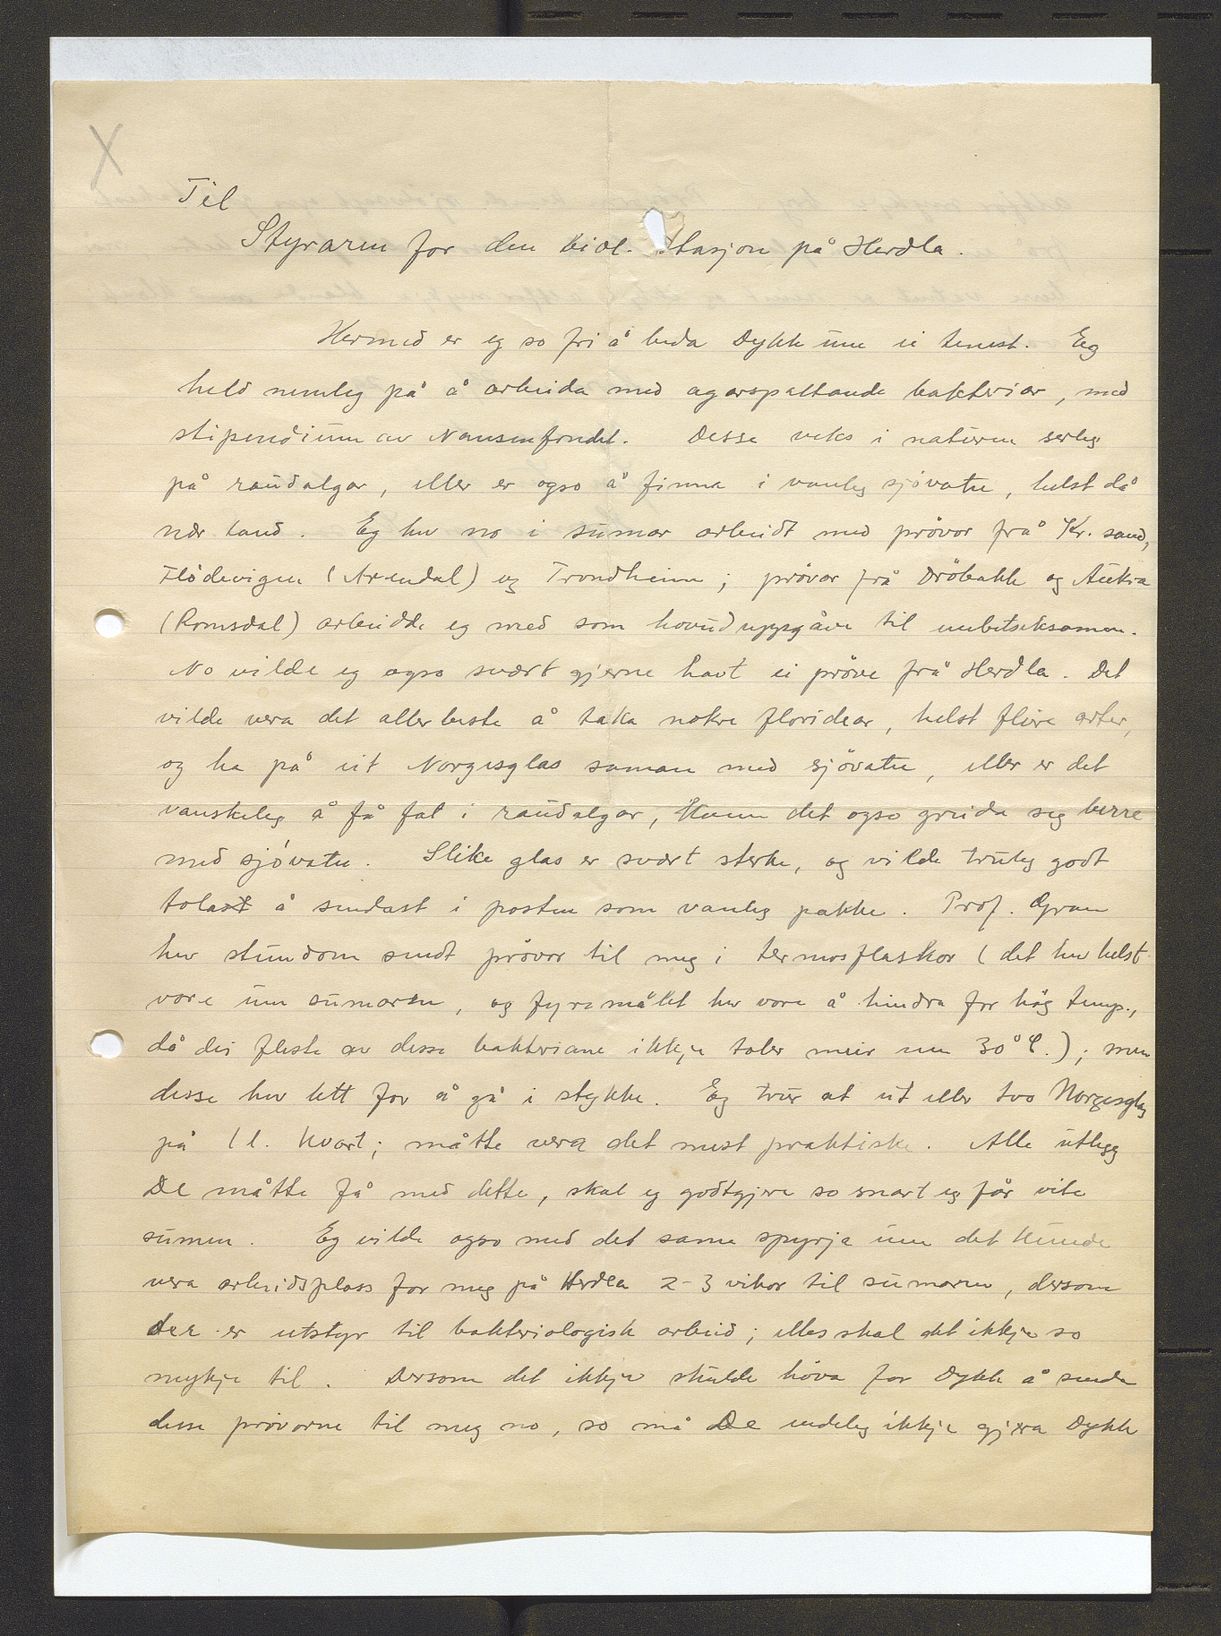 X
Til
Styraren for den biol. Stasjon på Herdla.
Hermed er eg so fri å beda Dykk um ei tenest. Eg
held nemleg på å arbeida med agarspaltande bakteriar, med
stipendium av Nansenfondet. Desse veks i naturen serleg
på raudalgar, eller er ogso å finna i vanleg sjövatn, helst då
nær land. Eg hev no i sumar arbeidt med pröver frå Kr. sand,
Flödevigen (Arendal) og Trondheim; prövor frå Dröbakk og Aukra
(Romsdal) arbeidde eg med som hovuduppgåve til embetseksamen.
No vilde eg ogso svært gjerne havt ei pröve frå Herdla. Det
vilde vera det aller beste å taka nokre floridear, helst fleire arter,
og ha på eit Norgesglas saman med sjövatn, eller er det
vanskeleg å få fat i raudalgar, kann det ogso greida seg berre
med sjövatn. Slike glas er svært sterke, og vilde truleg godt
tola å sendast i posten som vanleg pakke. Prof. Gran
hev stundom sendt prövor til meg i termosflaskor (det hev helst
vore um sumaren, og fyremålet hev vore å hindra for høg temp.,
då dei fleste av desse bakteriane ikkje toler meir enn 30° C.); men
desse hev lett for å gå i stykke. Eg trur at eit eller tvo Norgesglas
på 1 l. kvart; måtte vera det mest praktiske. Alle utlegg
De måtte få med dette, skal eg godtgjere so snart eg får vite
sumen. Eg vilde ogso med det same spyrja um det kunde
vera arbeidsplass for meg på Herdla 2-3 vikor til sumaren, dersom
der er utstyr til bakteriologisk arbeid; elles skal det ikkje so
mykje til. Dersom det ikkje skulde höva for Dykk å senda
desse prövorne til meg no, so må De endeleg ikkje gjera Dykk